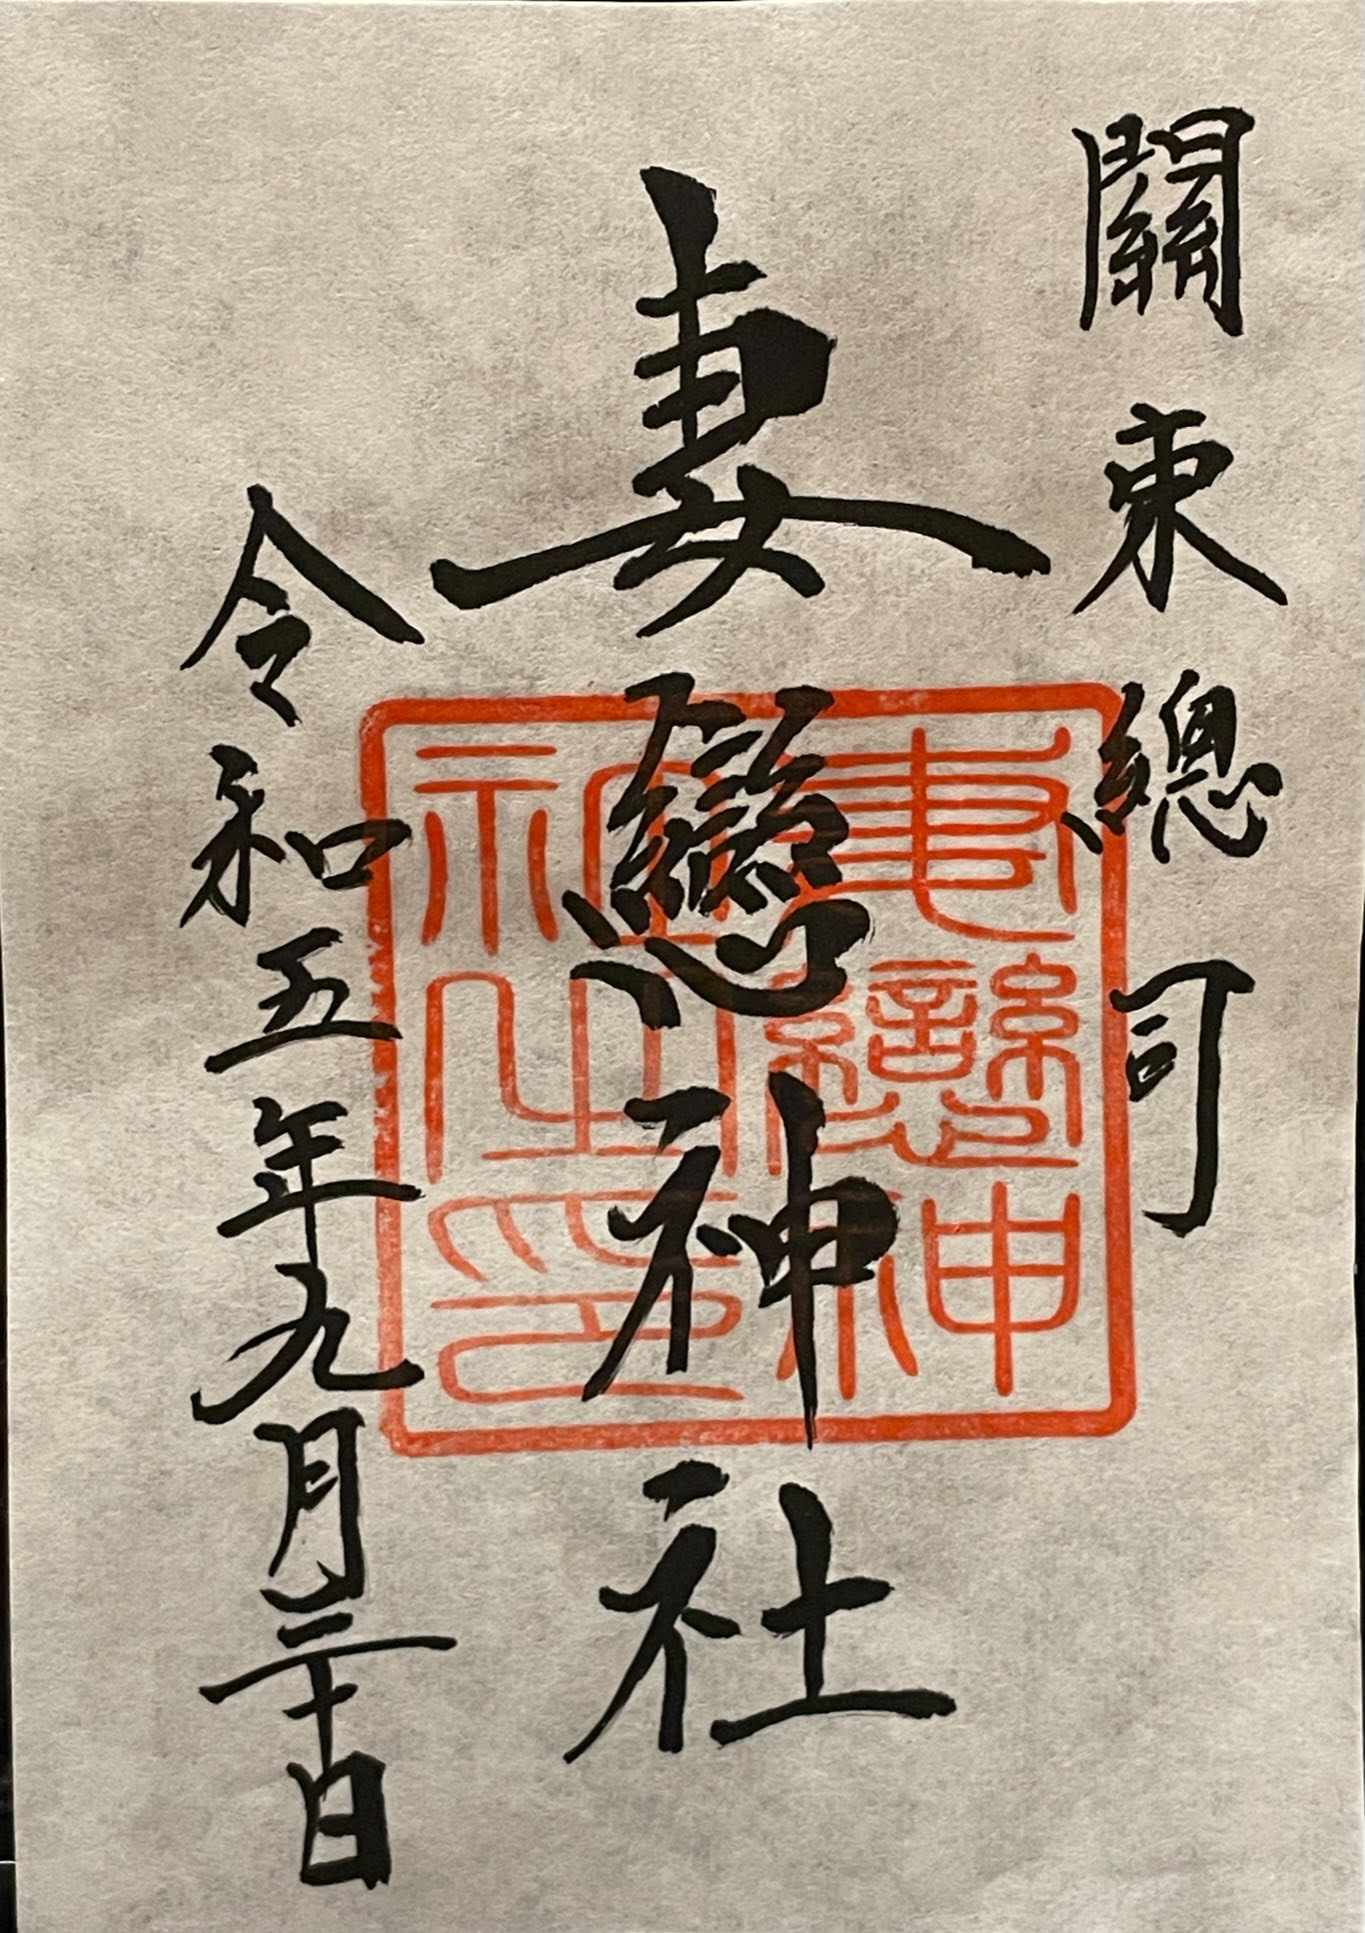 關東總司
妻戀神社
令和五年九月三十日
妻戀神
社之印